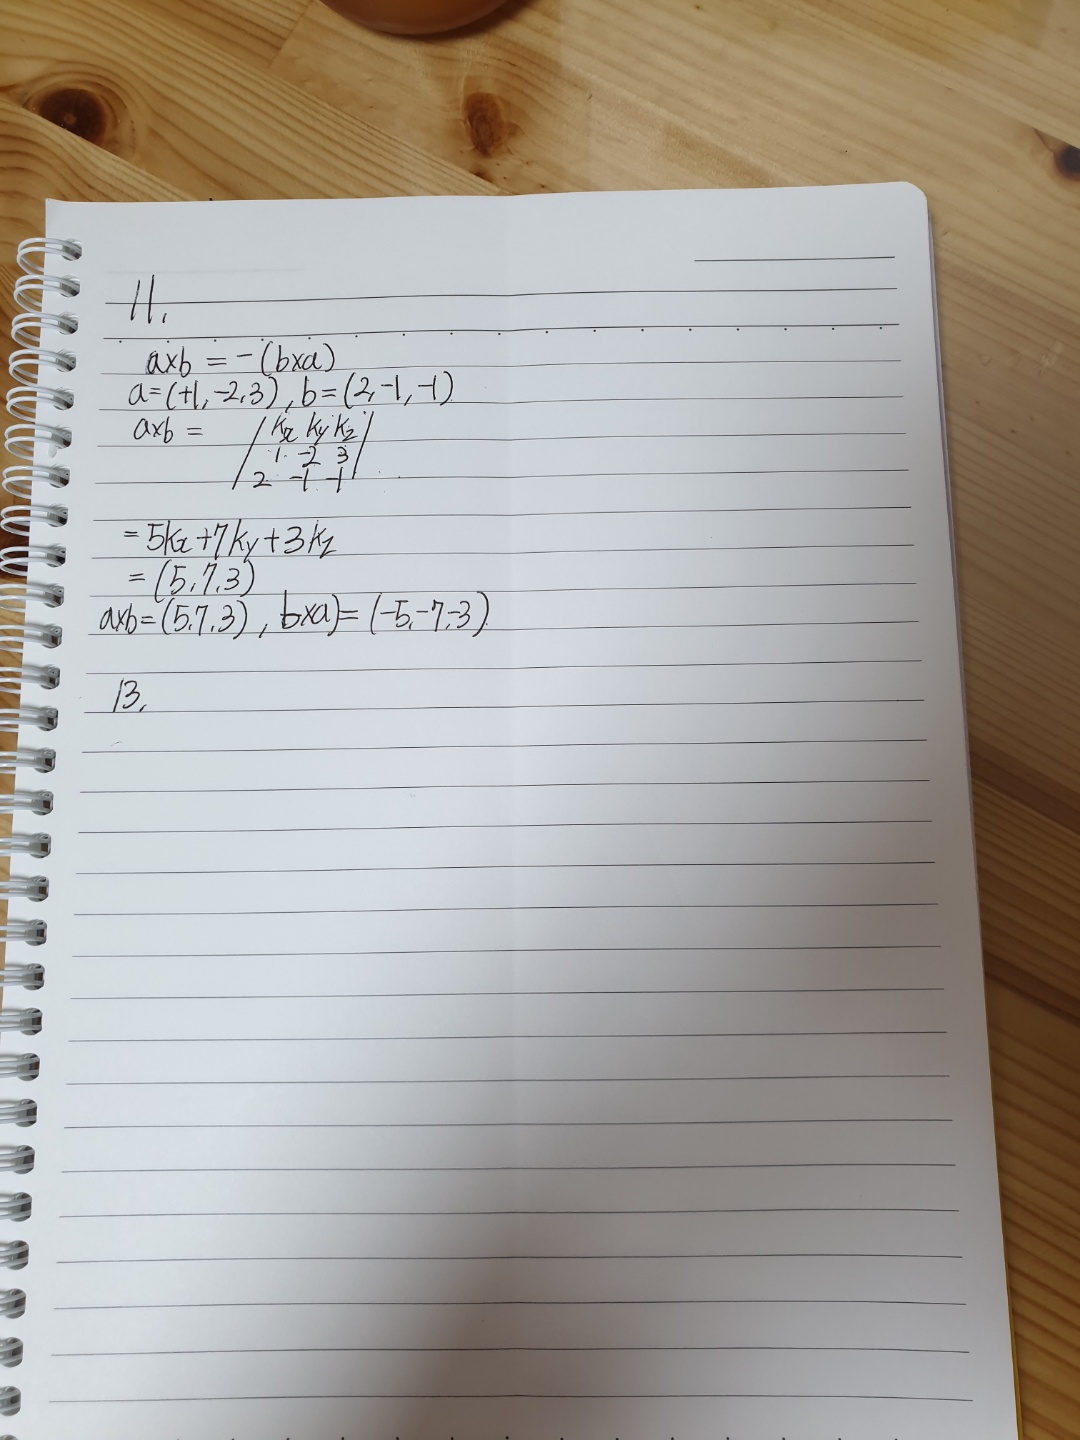 11.
a×b = -(b×a)
a=(+1,-2,3), b=(2,-1,-1)
a×b = | kx ky kz |
1 -2 3
2 -1 -1
= 5kx+7ky+3kz
= (5,7,3)
a×b=(5,7,3), b×a)= (-5,-7,-3)
13.